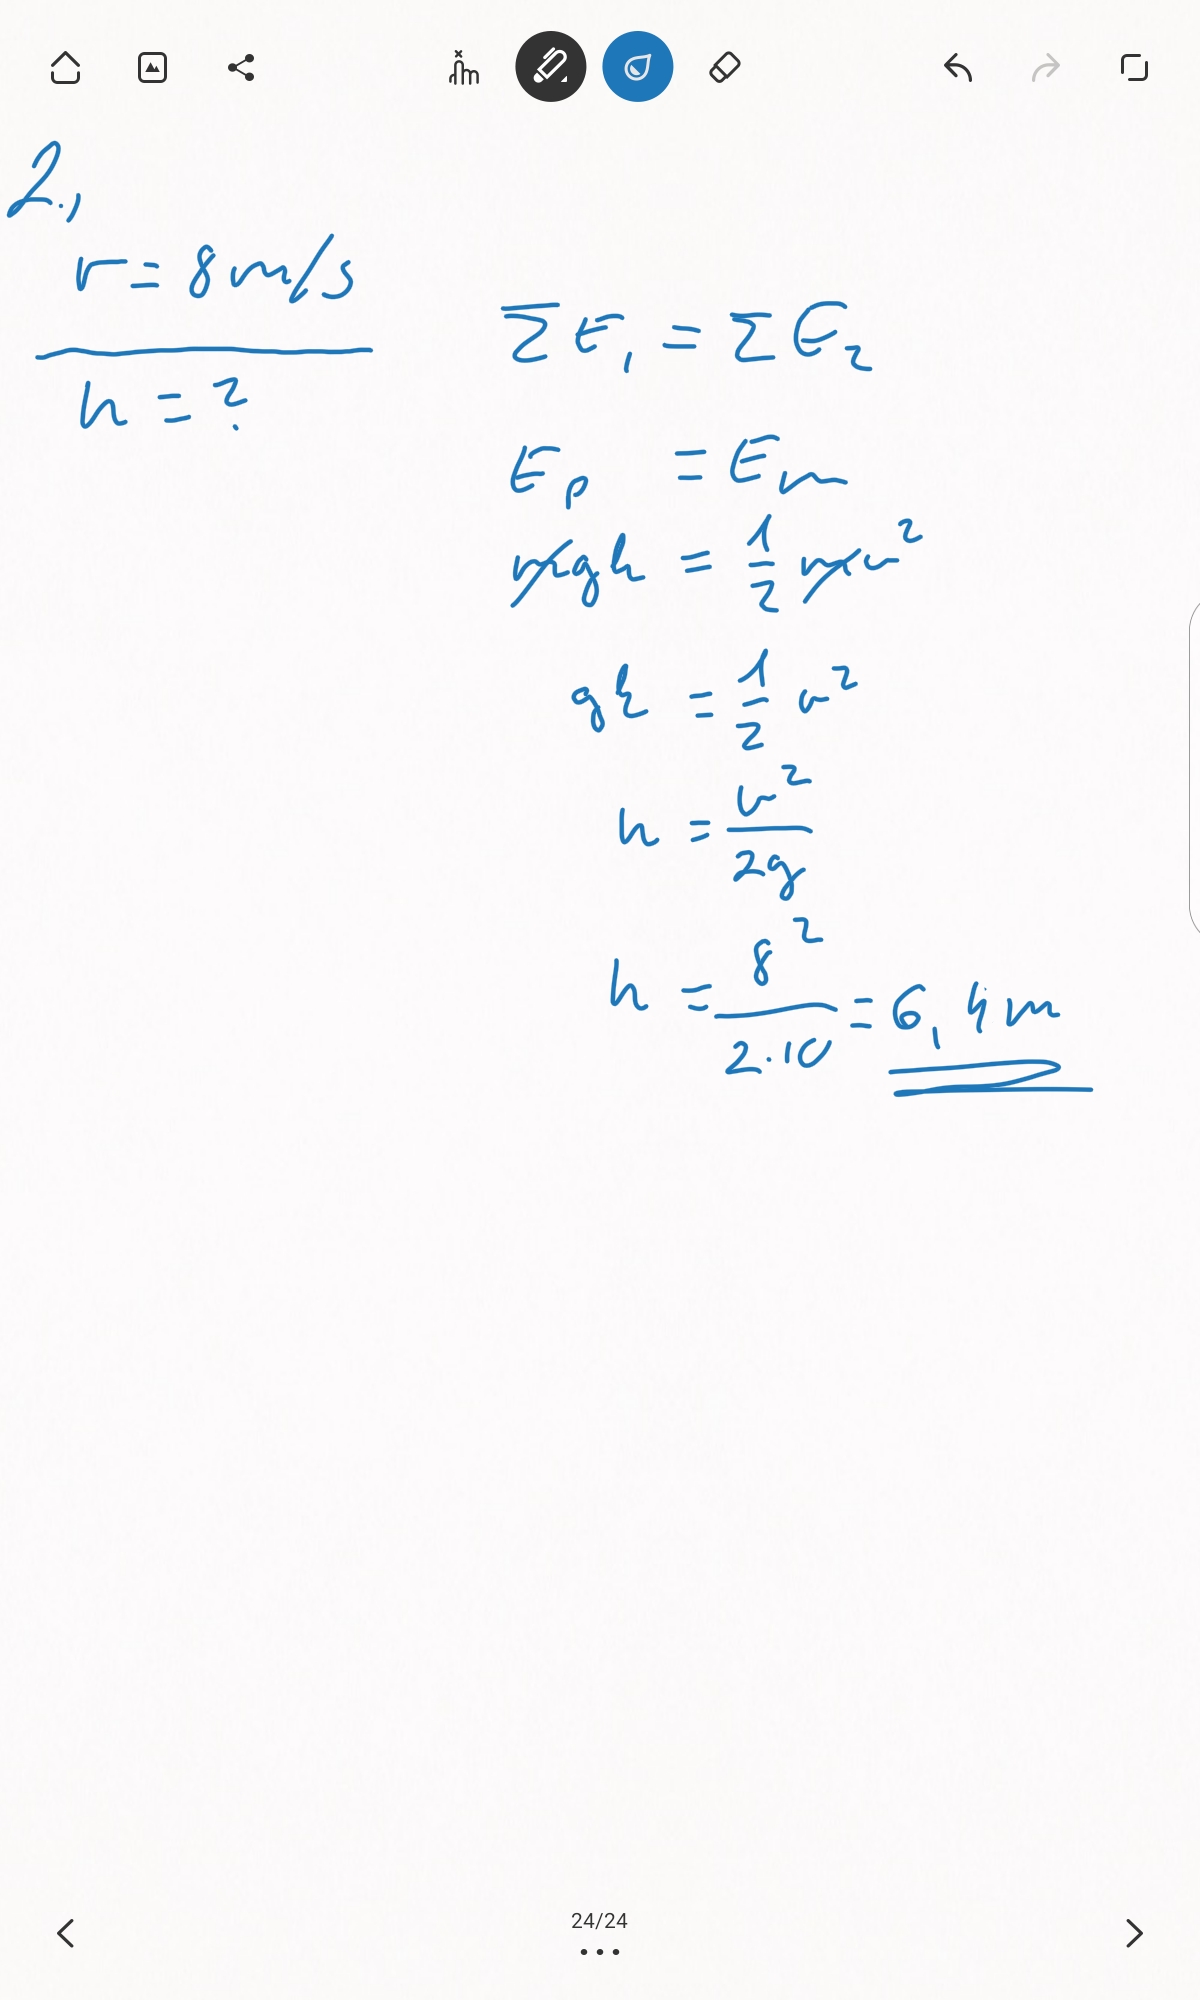 2.,
v = 8 m/s
h = ?
Σ E₁ = Σ E₂
E_p = E_m
mgh = 1/2 mv²
gh = 1/2 v²
h = v²/2g
h = 8²/2·10 = 6,4 m
24/24